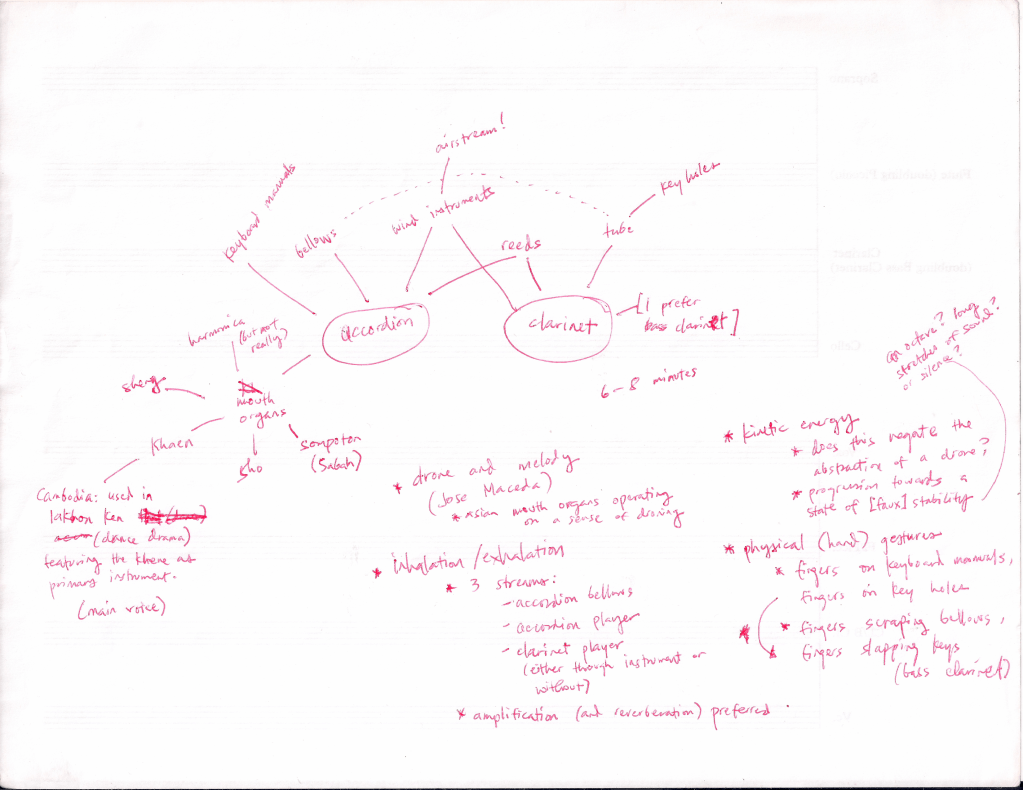 airstream!
keyboard manuals
bellows
wind instruments
reeds
tube
key holes
accordion
clarinet
[I prefer
bass clarinet]
6-8 minutes
harmonica
(but not
really)
sheng
mouth
organs
khaen
sho
sompoton
(Sabah)
Cambodia: used in
lakhon ken
(dance drama)
featuring the khene as
primary instrument.
(main voice)
* drone and melody
(Jose Maceda)
* Asian mouth organs operating
on a sense of droning
* inhalation/exhalation
* 3 streams:
- accordion bellows
- accordion player
- clarinet player
(either through instrument or
without)
* amplification (and reverberation) preferred.
an octave? long
stretches of sound?
or silence?
* kinetic energy
* does this negate the
abstraction of a drone?
* progression towards a
state of [faux] stability
* physical (hand) gestures
* fingers on keyboard manuals,
fingers on key holes
* fingers scraping bellows,
fingers slapping keys
(bass clarinet)
Soprano
Flute (doubling Piccolo)
Clarinet
(doubling Bass Clarinet)
Cello